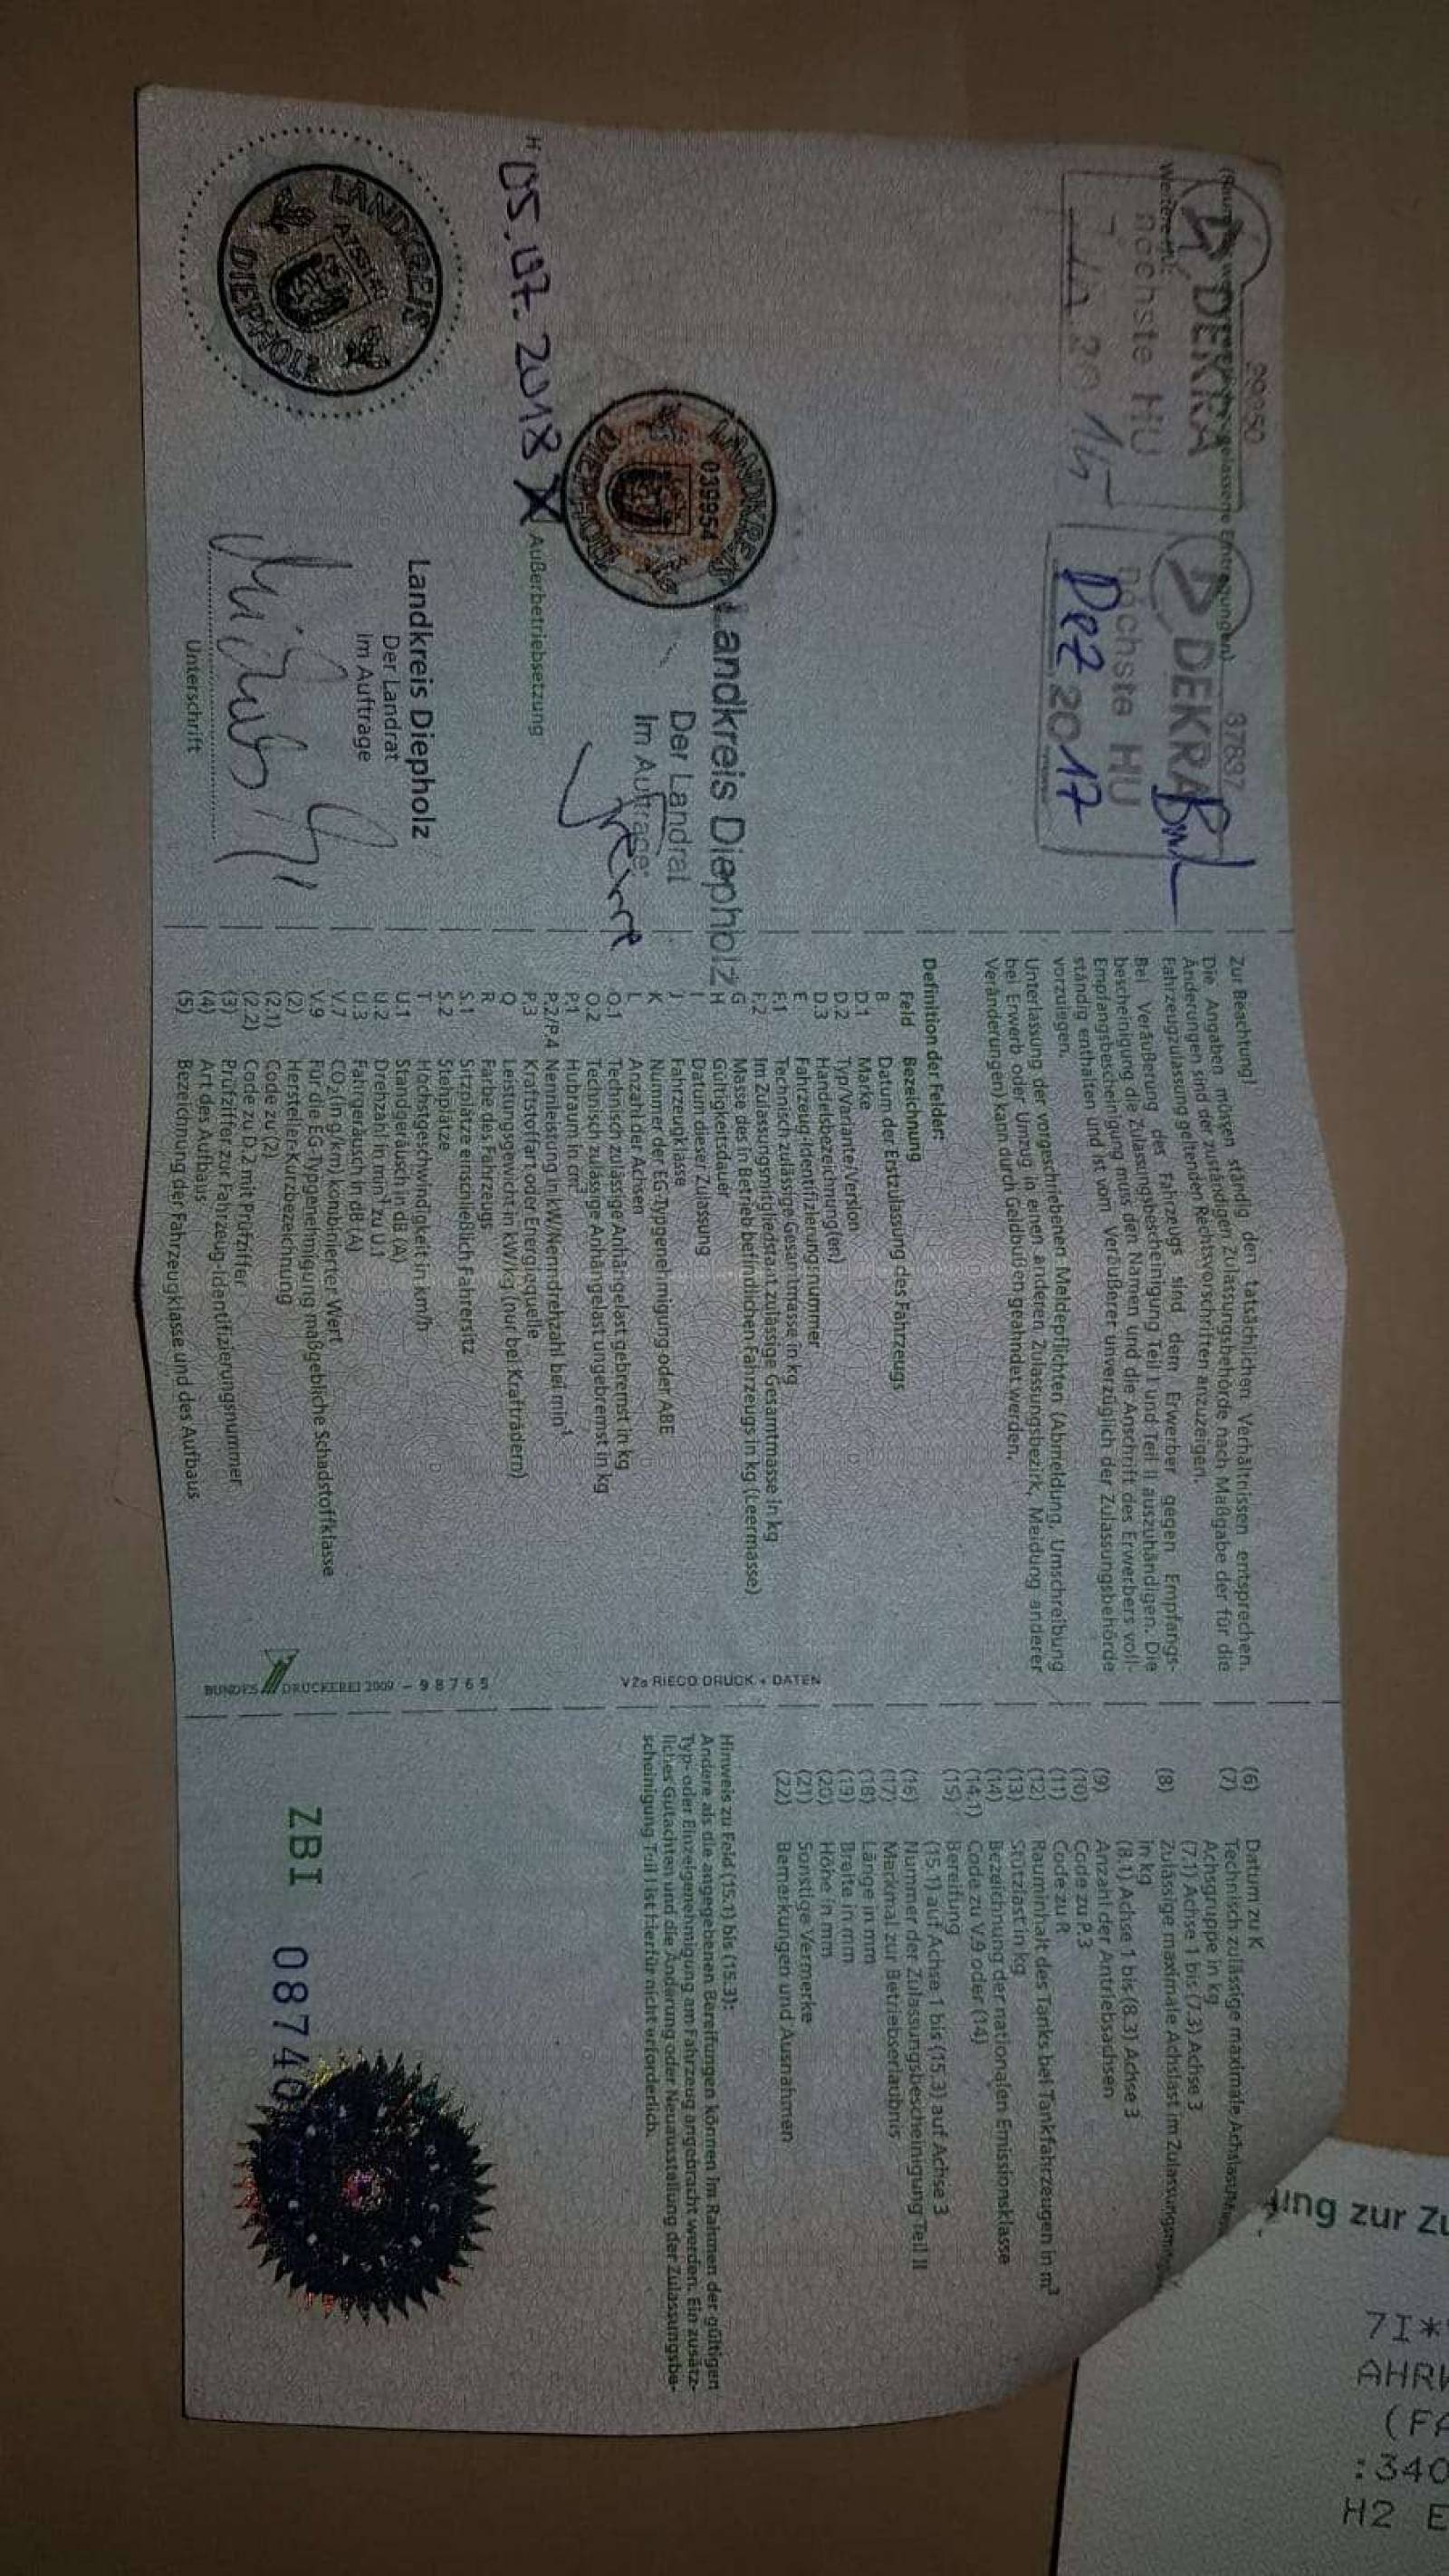 99950
DEKRA
nächste HU
37897
DEKRA
nächste HU
Dez 2017
Weitere
gelassene Eintragungen)
LANDKREIS
039954
DIEPHOLZ
Landkreis Diepholz
Der Landrat
Im Auftrage
H
05.07.2018 X Außerbetriebsetzung
LANDKREIS
DIEPHOLZ
Landkreis Diepholz
Der Landrat
Im Auftrage
Unterschrift
Zur Beachtung!
Die Angaben müssen ständig den tatsächlichen Verhältnissen entsprechen.
Änderungen sind der zuständigen Zulassungsbehörde nach Maßgabe der für die
Fahrzeugzulassung geltenden Rechtsvorschriften anzuzeigen.
Bei Veräußerung des Fahrzeugs sind dem Erwerber gegen Empfangs-
bescheinigung die Zulassungsbescheinigung Teil I und Teil II auszuhändigen. Die
Empfangsbescheinigung muss den Namen und die Anschrift des Erwerbers voll-
ständig enthalten und ist vom Veräußerer unverzüglich der Zulassungsbehörde
vorzulegen.
Unterlassung der vorgeschriebenen Meldepflichten (Abmeldung, Umschreibung
bei Erwerb oder Umzug in einen anderen Zulassungsbezirk, Meldung anderer
Veränderungen) kann durch Geldbußen geahndet werden.
Definition der Felder:
Feld Bezeichnung
B Datum der Erstzulassung des Fahrzeugs
D.1 Marke
D.2 Typ/Variante/Version
D.3 Handelsbezeichnung(en)
E Fahrzeug-Identifizierungsnummer
F.1 Technisch zulässige Gesamtmasse in kg
F.2 Im Zulassungsmitgliedstaat zulässige Gesamtmasse in kg
G Masse des in Betrieb befindlichen Fahrzeugs in kg (Leermasse)
H Gültigkeitsdauer
I Datum dieser Zulassung
J Fahrzeugklasse
K Nummer der EG-Typgenehmigung oder ABE
L Anzahl der Achsen
O.1 Technisch zulässige Anhängelast gebremst in kg
O.2 Technisch zulässige Anhängelast ungebremst in kg
P.1 Hubraum in cm³
P.2/P.4 Nennleistung in kW/Nenndrehzahl bei min⁻¹
P.3 Kraftstoffart oder Energiequelle
Q Leistungsgewicht in kW/kg (nur bei Krafträdern)
R Farbe des Fahrzeugs
S.1 Sitzplätze einschließlich Fahrersitz
S.2 Stehplätze
T Höchstgeschwindigkeit in km/h
U.1 Standgeräusch in dB (A)
U.2 Drehzahl in min⁻¹ zu U.1
U.3 Fahrgeräusch in dB (A)
V.7 CO₂ (in g/km) kombinierter Wert
V.9 Für die EG-Typgenehmigung maßgebliche Schadstoffklasse
(2) Hersteller-Kurzbezeichnung
(2.1) Code zu (2)
(2.2) Code zu D.2 mit Prüfziffer
(3) Prüfziffer zur Fahrzeug-Identifizierungsnummer
(4) Art des Aufbaus
(5) Bezeichnung der Fahrzeugklasse und des Aufbaus
V2a RIECO DRUCK + DATEN
BUNDESDRUCKEREI 2009 – 98765
(6) Datum zu K
(7) Technisch zulässige maximale Achslast/
Achsgruppe in kg
(7.1) Achse 1 bis (7.3) Achse 3
(8) Zulässige maximale Achslast im
in kg
(8.1) Achse 1 bis (8.3) Achse 3
(9) Anzahl der Antriebsachsen
(10) Code zu P.3
(11) Code zu R
(12) Rauminhalt des Tanks bei Tankfahrzeugen in m³
(13) Stützlast in kg
(14) Bezeichnung der nationalen Emissionsklasse
(14.1) Code zu V.9 oder (14)
(15) Bereifung
(15.1) auf Achse 1 bis (15.3) auf Achse 3
(16) Nummer der Zulassungsbescheinigung Teil II
(17) Merkmal zur Betriebserlaubnis
(18) Länge in mm
(19) Breite in mm
(20) Höhe in mm
(21) Sonstige Vermerke
(22) Bemerkungen und Ausnahmen
Hinweis zu Feld (15.1) bis (15.3):
Andere als die angegebenen Bereifungen können im Rahmen der gültigen
Typ- oder Einzelgenehmigung am Fahrzeug angebracht werden. Ein zusätz-
liches Gutachten und die Änderung oder Neuausstellung der Zulassungsbe-
scheinigung Teil I ist hierfür nicht erforderlich.
ZBI 08740
ung zur Zu
7I*
AHRW
(FA
:340
H2 E